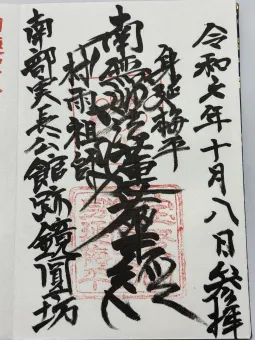 令和七年十月八日参拝
身延梅平
南無妙法蓮華経
村雨祖師
南部実長公館跡鏡圓坊